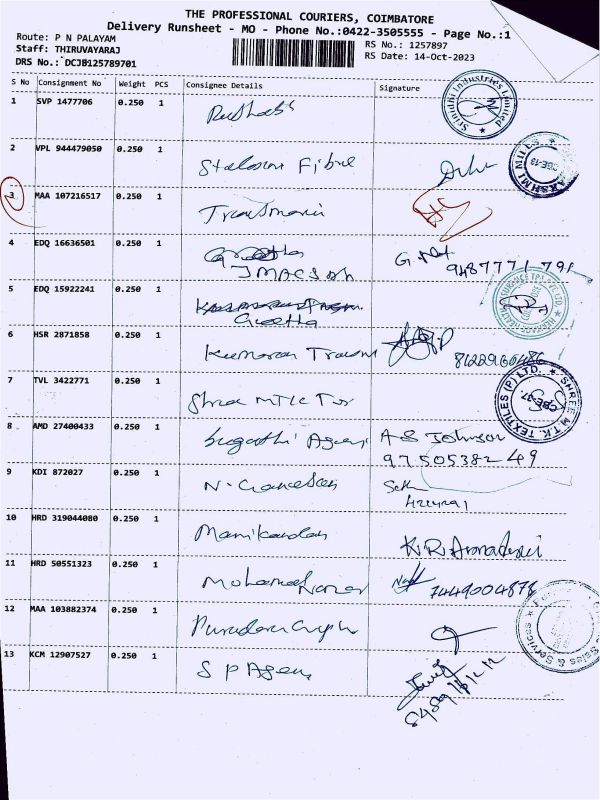 THE PROFESSIONAL COURIERS, COIMBATORE
Delivery Runsheet - MO - Phone No.:0422-3505555 - Page No.:1
Route: P N PALAYAM
RS No.: 1257897
Staff: THIRUVAYARAJ
RS Date: 14-Oct-2023
DRS No.: DCJB125789701
S No Consignment No Weight PCS Consignee Details Signature
1 SVP 1477706 0.250 1
Srinidhi Industries Limited
2 VPL 944479050 0.250 1 Stalson Fibre
LAKSHMI MILLS
3 MAA 107216517 0.250 1
4 EDQ 16636501 0.250 1 Geetha
9487771791
5 EDQ 15922241 0.250 1
Geetha
6 HSR 2871858 0.250 1 Kumaran
7 TVL 3422771 0.250 1 Shree MTK Tex
SHREE M.T.K. TEXTILES (P) LTD. CBE-37.
8 AMD 27400433 0.250 1 A S Johnson
9750538249
9 KDI 872027 0.250 1 N. Ganesan
10 HRD 319044080 0.250 1 Manikandan
11 HRD 50551323 0.250 1 Mohamed
7449004878
12 MAA 103882374 0.250 1
Sales & Service
13 KCM 12907527 0.250 1 S P Agency